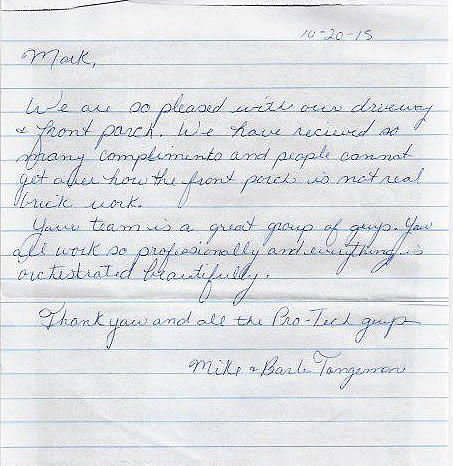 10-20-15
Mark,
We are so pleased with our driveway
& front porch. We have recieved so
many compliments and people cannot
get over how the front porch is not real
brick work.
Your team is a great group of guys. You
all work so professionally and everything is
orchestrated beautifully.
Thank you and all the Pro-Tech guys
Mike & Barb Tangeman